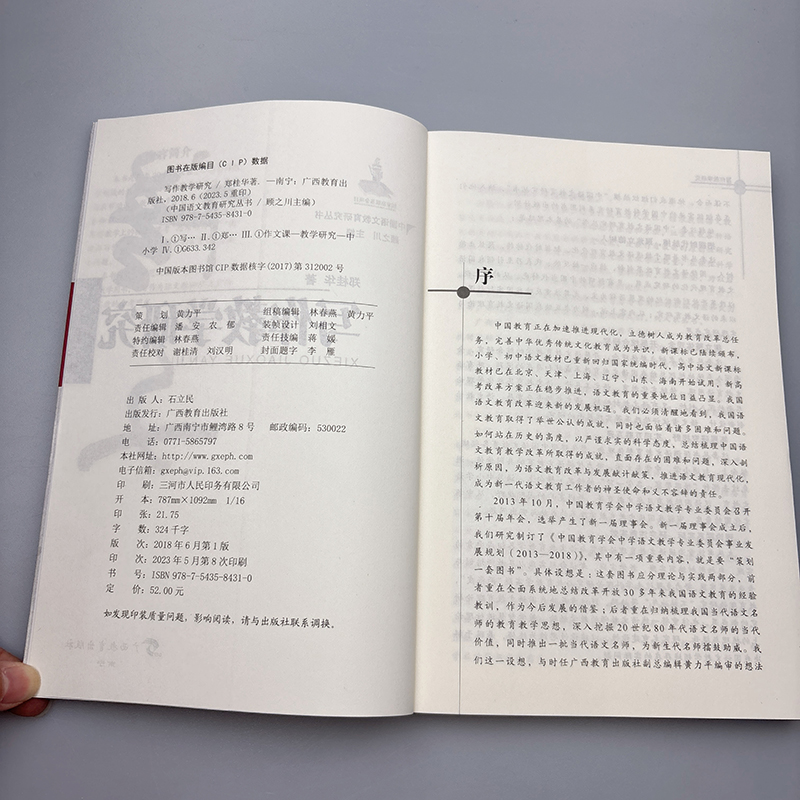 图书在版编目(CIP)数据
写作教学研究 / 郑桂华著. —南宁:广西教育出
版社, 2018.6 (2023.5重印)
(中国语文教育研究丛书 / 顾之川主编)
ISBN 978-7-5435-8431-0
Ⅰ.①写… Ⅱ.①郑… Ⅲ.①作文课—教学研究—中
小学 Ⅳ.①G633.342
中国版本图书馆CIP数据核字(2017)第312002号
策 划 黄力平 组稿编辑 林春燕 黄力平
责任编辑 潘 安 农 郁 装帧设计 刘相文
特约编辑 林春燕 责任技编 蒋 媛
责任校对 谢桂清 刘汉明 封面题字 李 雁
出 版 人:石立民
出版发行:广西教育出版社
地 址:广西南宁市鲤湾路8号 邮政编码:530022
电 话:0771-5865797
本社网址:http://www.gxeph.com
电子信箱:gxeph@vip.163.com
印 刷:三河市人民印务有限公司
开 本:787mm×1092mm 1/16
印 张:21.75
字 数:324千字
版 次:2018年6月第1版
印 次:2023年5月第8次印刷
书 号:ISBN 978-7-5435-8431-0
定 价:52.00元
如发现印装质量问题,影响阅读,请与出版社联系调换。
序
中国教育正在加速推进现代化,立德树人成为教育改革总任
务,完善中华优秀传统文化教育成为共识,新课标已陆续颁布,
小学、初中语文教材已重新回归国家统编时代,高中语文新课标
教材已在北京、天津、上海、辽宁、山东、海南开始试用,新高
考改革方案正在稳步推进,语文教育的重要地位日益凸显。我国
语文教育改革迎来新的发展机遇。我们必须清醒地看到,我国语
文教育取得了举世公认的成就,同时也面临着诸多困难和问题。
如何站在历史的高度,以严谨求实的科学态度,总结梳理中国语
文教育教学改革所取得的成就,直面存在的困难和问题,深入剖
析原因,为语文教育改革与发展献计献策,推进语文教育现代化,
成为新一代语文教育工作者的神圣使命和义不容辞的责任。
2013年10月,中国教育学会中学语文教学专业委员会召开
第十届年会,选举产生了新一届理事会。新一届理事会成立后,
我们研究制订了《中国教育学会中学语文教学专业委员会事业发
展规划(2013—2018)》,其中有一项重要内容,就是要“策划
一套图书”。具体设想是:这套图书应分理论与实践两部分,前
者重在全面系统地总结改革开放30多年来我国语文教育的经验
教训,作为今后发展的借鉴;后者重在归纳梳理我国当代语文名
师的教育教学思想,深入挖掘20世纪80年代语文名师的当代
价值,同时推出一批当代语文名师,为新生代名师擂鼓助威。我
们这一设想,与时任广西教育出版社副总编辑黄力平编审的想法